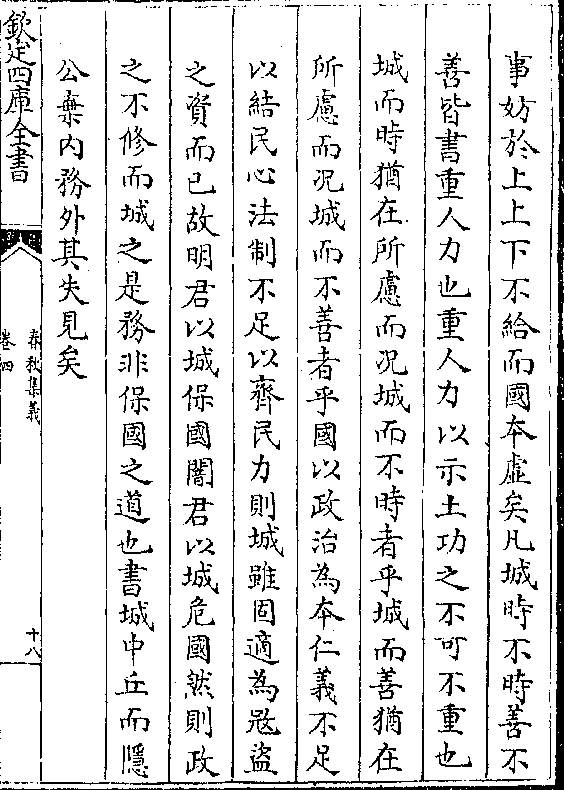 事妨於上上下不給而國本虚矣凡城時不時善不
善皆書重人力也重人力以示土功之不可不重也
城而時猶在所慮而况城而不時者乎城而善猶在
所慮而况城而不善者乎國以政治為本仁義不足
以結民心法制不足以齊民力則城雖固適為㓂盗
之資而已故明君以城保國闇君以城危國然則政
之不修而城之是務非保國之道也書城中丘而隱
公棄内務外其失見矣
欽定四庫全書
春秋集義
卷四
十八